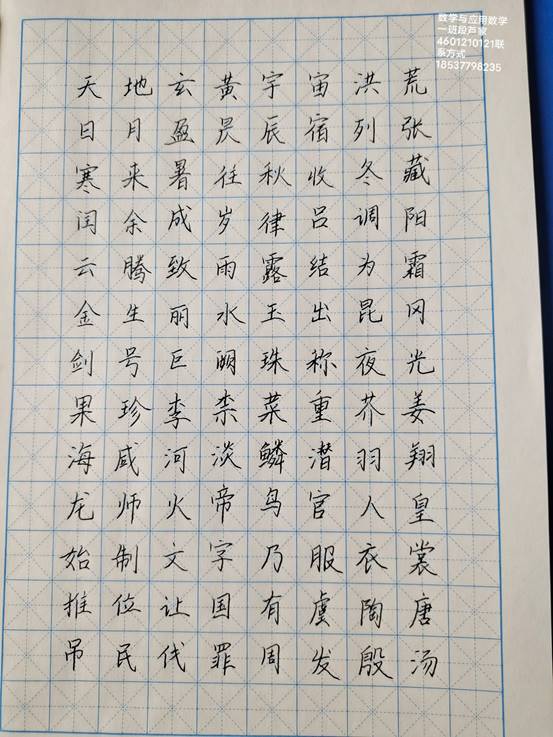 数学与应用数学
一班段芦家
4601210121联
系方式
18537798235
天地玄黄宇宙洪荒
日月盈昃辰宿列张
寒来暑往秋收冬藏
闰余成岁律吕调阳
云腾致雨露结为霜
金生丽水玉出昆冈
剑号巨阙珠称夜光
果珍李柰菜重芥姜
海咸河淡鳞潜羽翔
龙师火帝鸟官人皇
始制文字乃服衣裳
推位让国有虞陶唐
吊民伐罪周发殷汤